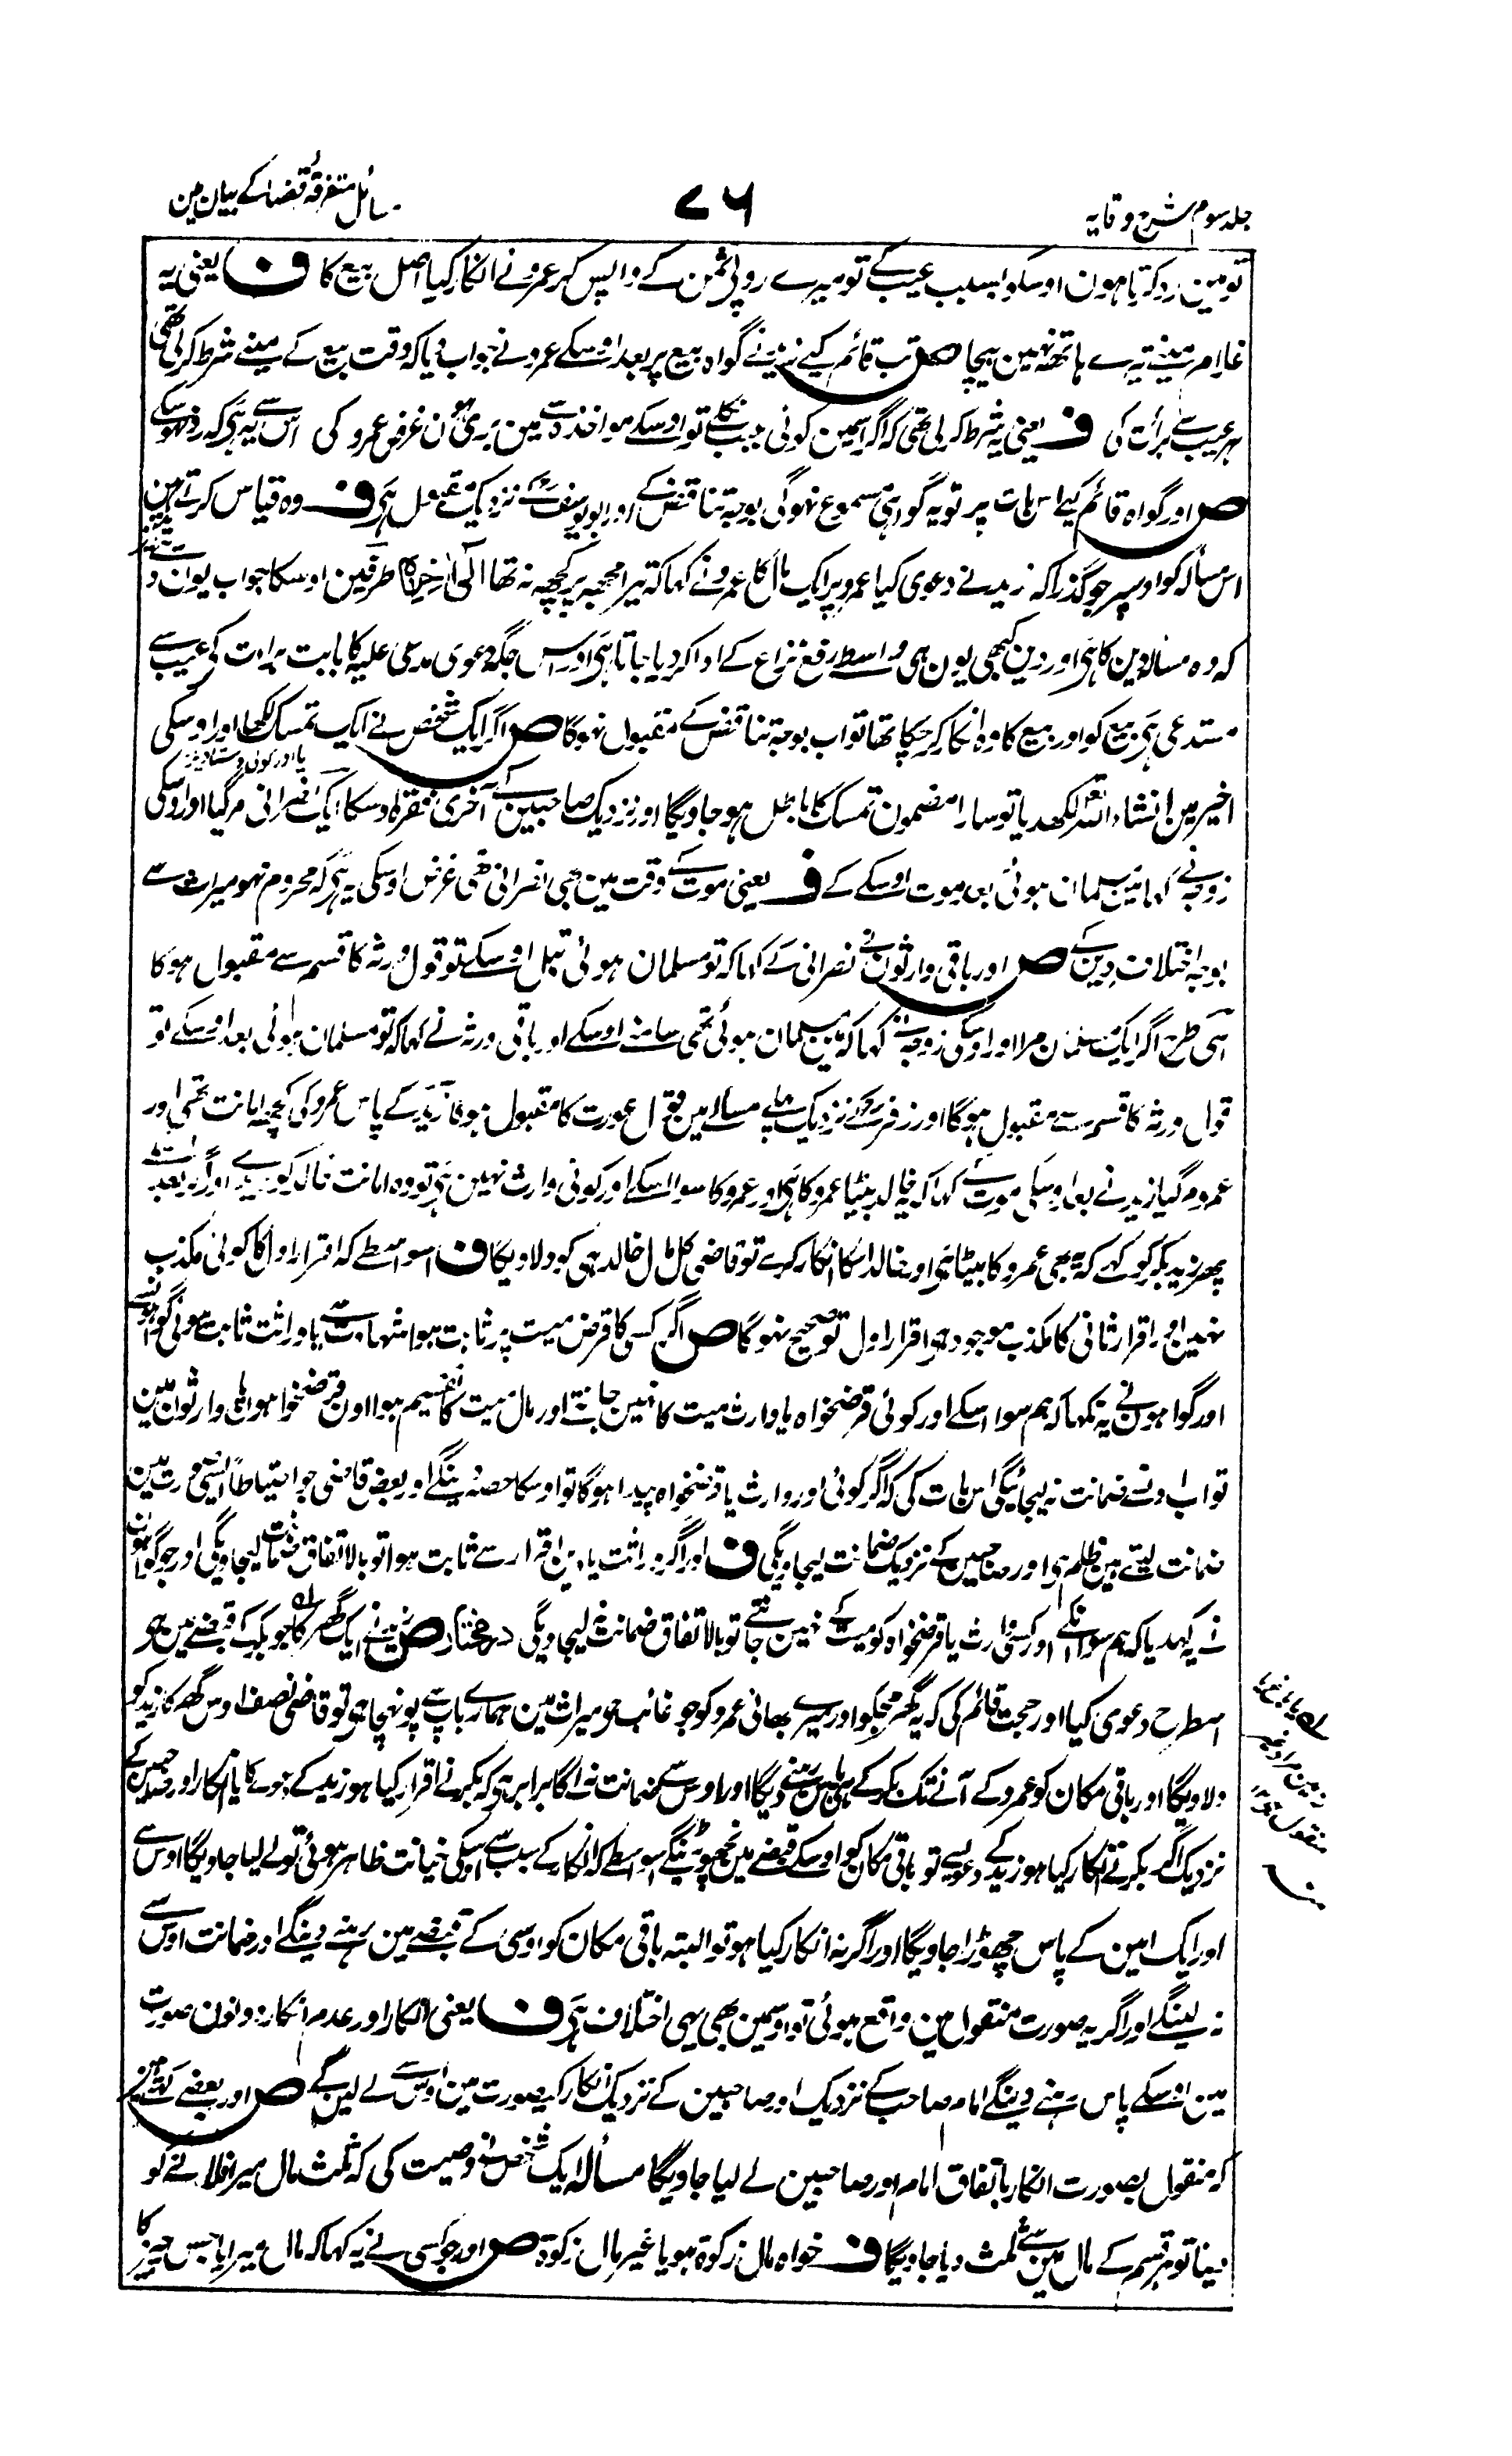 جلد سوم شرح وقایہ
۷۶
مسائل متفرقہ قضا کے بیان مین
تو مین رد کرتا ہون اوسکو بسبب عیب کے تو میرے روپی ثمن کے واپس کر عمرو نے انکار کیا اصل بیع کا ف یعنی یہ
غلام مینے تیرے ہاتھ نہین بیچا ص تب قائم کیے زید نے گواہ بیع پر بعد اوسکے عمرو نے جواب دیا کہ وقت بیع کے مینے شرط کرلی تھی
ہر عیب سے برأت کی ف یعنی یہ شرط کرلی تھی کہ اگر اسمین کوئی عیب نکلے تو اوسکے مواخذہ سے مین بری ہون غرض عمرو کی اس سے یہ ہی کہ رد نہوسکے
ص اور گواہ قائم کیے اس بات پر تو یہ گواہی مسموع نہوگی بوجہ تناقض کے اور ابو یوسف کے نزدیک مقبول ہی ف وہ قیاس کرتے ہین
اس مسألہ کو اوسپر جو گذرا کہ زید نے دعوی کیا عمرو پر ایک مال کا عمرو نے کہا کہ تیرا مجھپر کچھ نہ تھا الی آخرہ طرفین اوسکا جواب یون دیتے ہین
کہ وہ مسألہ دین کا ہی اور دین کبھی یون ہی واسطے رفع نزاع کے ادا کردیا جاتا ہی اور اس جگہ دعوی مدعی علیہ کا بابت برارت کی عیب سے
مستدعی ہی بیع کو اور بیع کا وہ انکار کرچکا تھا تو اب بوجہ تناقض کے مقبول نہوگا ص اگر ایک شخص نے ایک تمسک لکھا اور اوسکی
یا اور کوئی دستاویز
اخیر مین انشاء اللہ تعالی لکھدیا تو سارا مضمون تمسک کا باطل ہو جاویگا اور نزدیک صاحبین کے آخری فقرہ اوسکا ایک نصرانی مرگیا اور اوسکی
زوجہ نے کہا مین مسلمان ہوئی بعد موت اوسکے کے ف یعنی موت کے وقت مین بھی نصرانی تھی غرض اوسکی یہ ہی کہ محروم نہو میراث سے
بوجہ اختلاف دین کے ص اور باقی وارثون نے نصرانی کے کہا کہ تو مسلمان ہوئی قبل اوسکے تو قول ورثہ کا قسم سے مقبول ہوگا
اسی طرح اگر ایک مسلمان مرا اور اوسکی زوجہ نے کہا کہ مین مسلمان ہوئی تھی سامنے اوسکے اور باقی ورثہ نے کہا کہ تو مسلمان ہوئی بعد اوسکے تو
قول ورثہ کا قسم سے مقبول ہوگا اور زفر کے نزدیک پہلے مسألے مین قول عورت کا مقبول ہوگا زید کے پاس عمرو کی کچھ امانت تھی اور
عمرو مرگیا زید نے بعد اوسکی موت کے کہا کہ خالد بیٹا عمرو کا ہی اور عمرو کا سوا اسکے اور کوئی وارث نہین ہی تو وہ امانت خالد کو دیوے اور اگر بعد اسکے
پھر زید بکر کو کہے کہ یہ بھی عمرو کا بیٹا ہی اور خالد اسکا انکار کرے تو قاضی کل مال خالد ہی کو دلاویگا ف اسواسطے کہ اقرار اول کا کوئی مکذب
نہین اور اقرار ثانی کا مکذب موجود ہی اقرار اول تو صحیح نہوگا ص اگر کسی کا قرض میت پر ثابت ہوا شہادت سے یا وراثت ثابت ہوئی گواہونسے
اور گواہون نے یہ نکہا کہ ہم سوا اسکے اور کوئی قرضخواہ یا وارث میت کا نہین جانتے اور مال میت کا تقسیم ہوا اون قرضخواہون یا وارثون مین
تو اب اونسے ضمانت نہ لیجائیگی اس بات کی کہ اگر کوئی اور وارث یا قرضخواہ پیدا ہوگا تو اوسکا حصہ دینگے اور بعض قاضی جو احتیاطاً ایسی صورت مین
ضمانت لیتے ہین ظلم ہی اور صاحبین کے نزدیک ضمانت لیجاویگی ف اور اگر وراثت یا دین اقرار سے ثابت ہوا تو بالاتفاق ضمانت لیجاویگی اور جو گواہون
نے یہ کہدیا کہ ہم سوا انکے اور کسی وارث یا قرضخواہ کو میت کے نہین جانتے تو بالاتفاق ضمانت نہ لیجاویگی درمختار ص زید نے ایک گھر کا جو بکر کے قبضے مین ہی
اسطرح دعوی کیا اور حجت قائم کی کہ یہ گھر مجکو اور میرے بھائی عمرو کو جو غائب ہی میراث مین ہمارے باپ سے پونہچا ہی تو قاضی نصف اوس گھر کا زید کو
دلاویگا اور باقی مکان کو عمرو کے آنے تک بکر کے ہی پاس رہنے دیگا اور اوس سے ضمانت نہ لیگا برابر ہی کہ بکر نے اقرار کیا ہو زید کے دعوے کا یا انکار اور صاحبین کے
نزدیک اگر بکر نے انکار کیا ہو زید کے دعویسے تو باقی مکان کو اوسکے قبضے مین نچھوڑینگے اسواسطے کہ انکار کے سبب سے اوسکی خیانت ظاہر ہوئی تو لے لیا جاویگا اوس سے
اور ایک امین کے پاس چھوڑا جاویگا اور اگر نہ انکار کیا ہو تو البتہ باقی مکان کو اوسی کے قبضے مین رہنے دینگے اور ضمانت اوس سے
نہ لینگے اور اگر یہ صورت منقول مین واقع ہوئی تو اوسمین بھی یہی اختلاف ہی ف یعنی انکار اور عدم انکار دونون صورت
مین اوسکے پاس رہنے دینگے امام صاحب کے نزدیک اور صاحبین کے نزدیک انکار کیصورت مین اوس سے لے لین گے ص اور بعضے کہتے ہین
کہ منقول بصورت انکار باتفاق امام اور صاحبین لے لیا جاویگا مسألہ ایک شخص نے وصیت کی کہ ثلث مال میرا فلانے کو
دینا تو ہر قسم کے مال مین سے ثلث دیا جاویگا ف خواہ مال زکوۃ ہو یا غیر مال زکوۃ ص اور جو کسی نے یہ کہا کہ مال میرا یا جس چیز کا